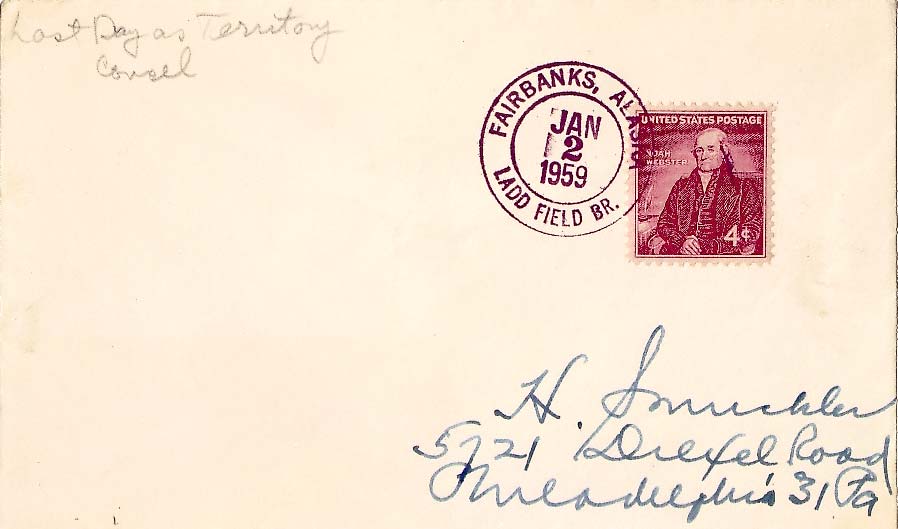 Last Day as Territory
Consel
FAIRBANKS, ALASKA
JAN
2
1959
LADD FIELD BR.
UNITED STATES POSTAGE
NOAH
WEBSTER
4¢
H.
5721 Drexel Road
Philadelphia 31 Pa